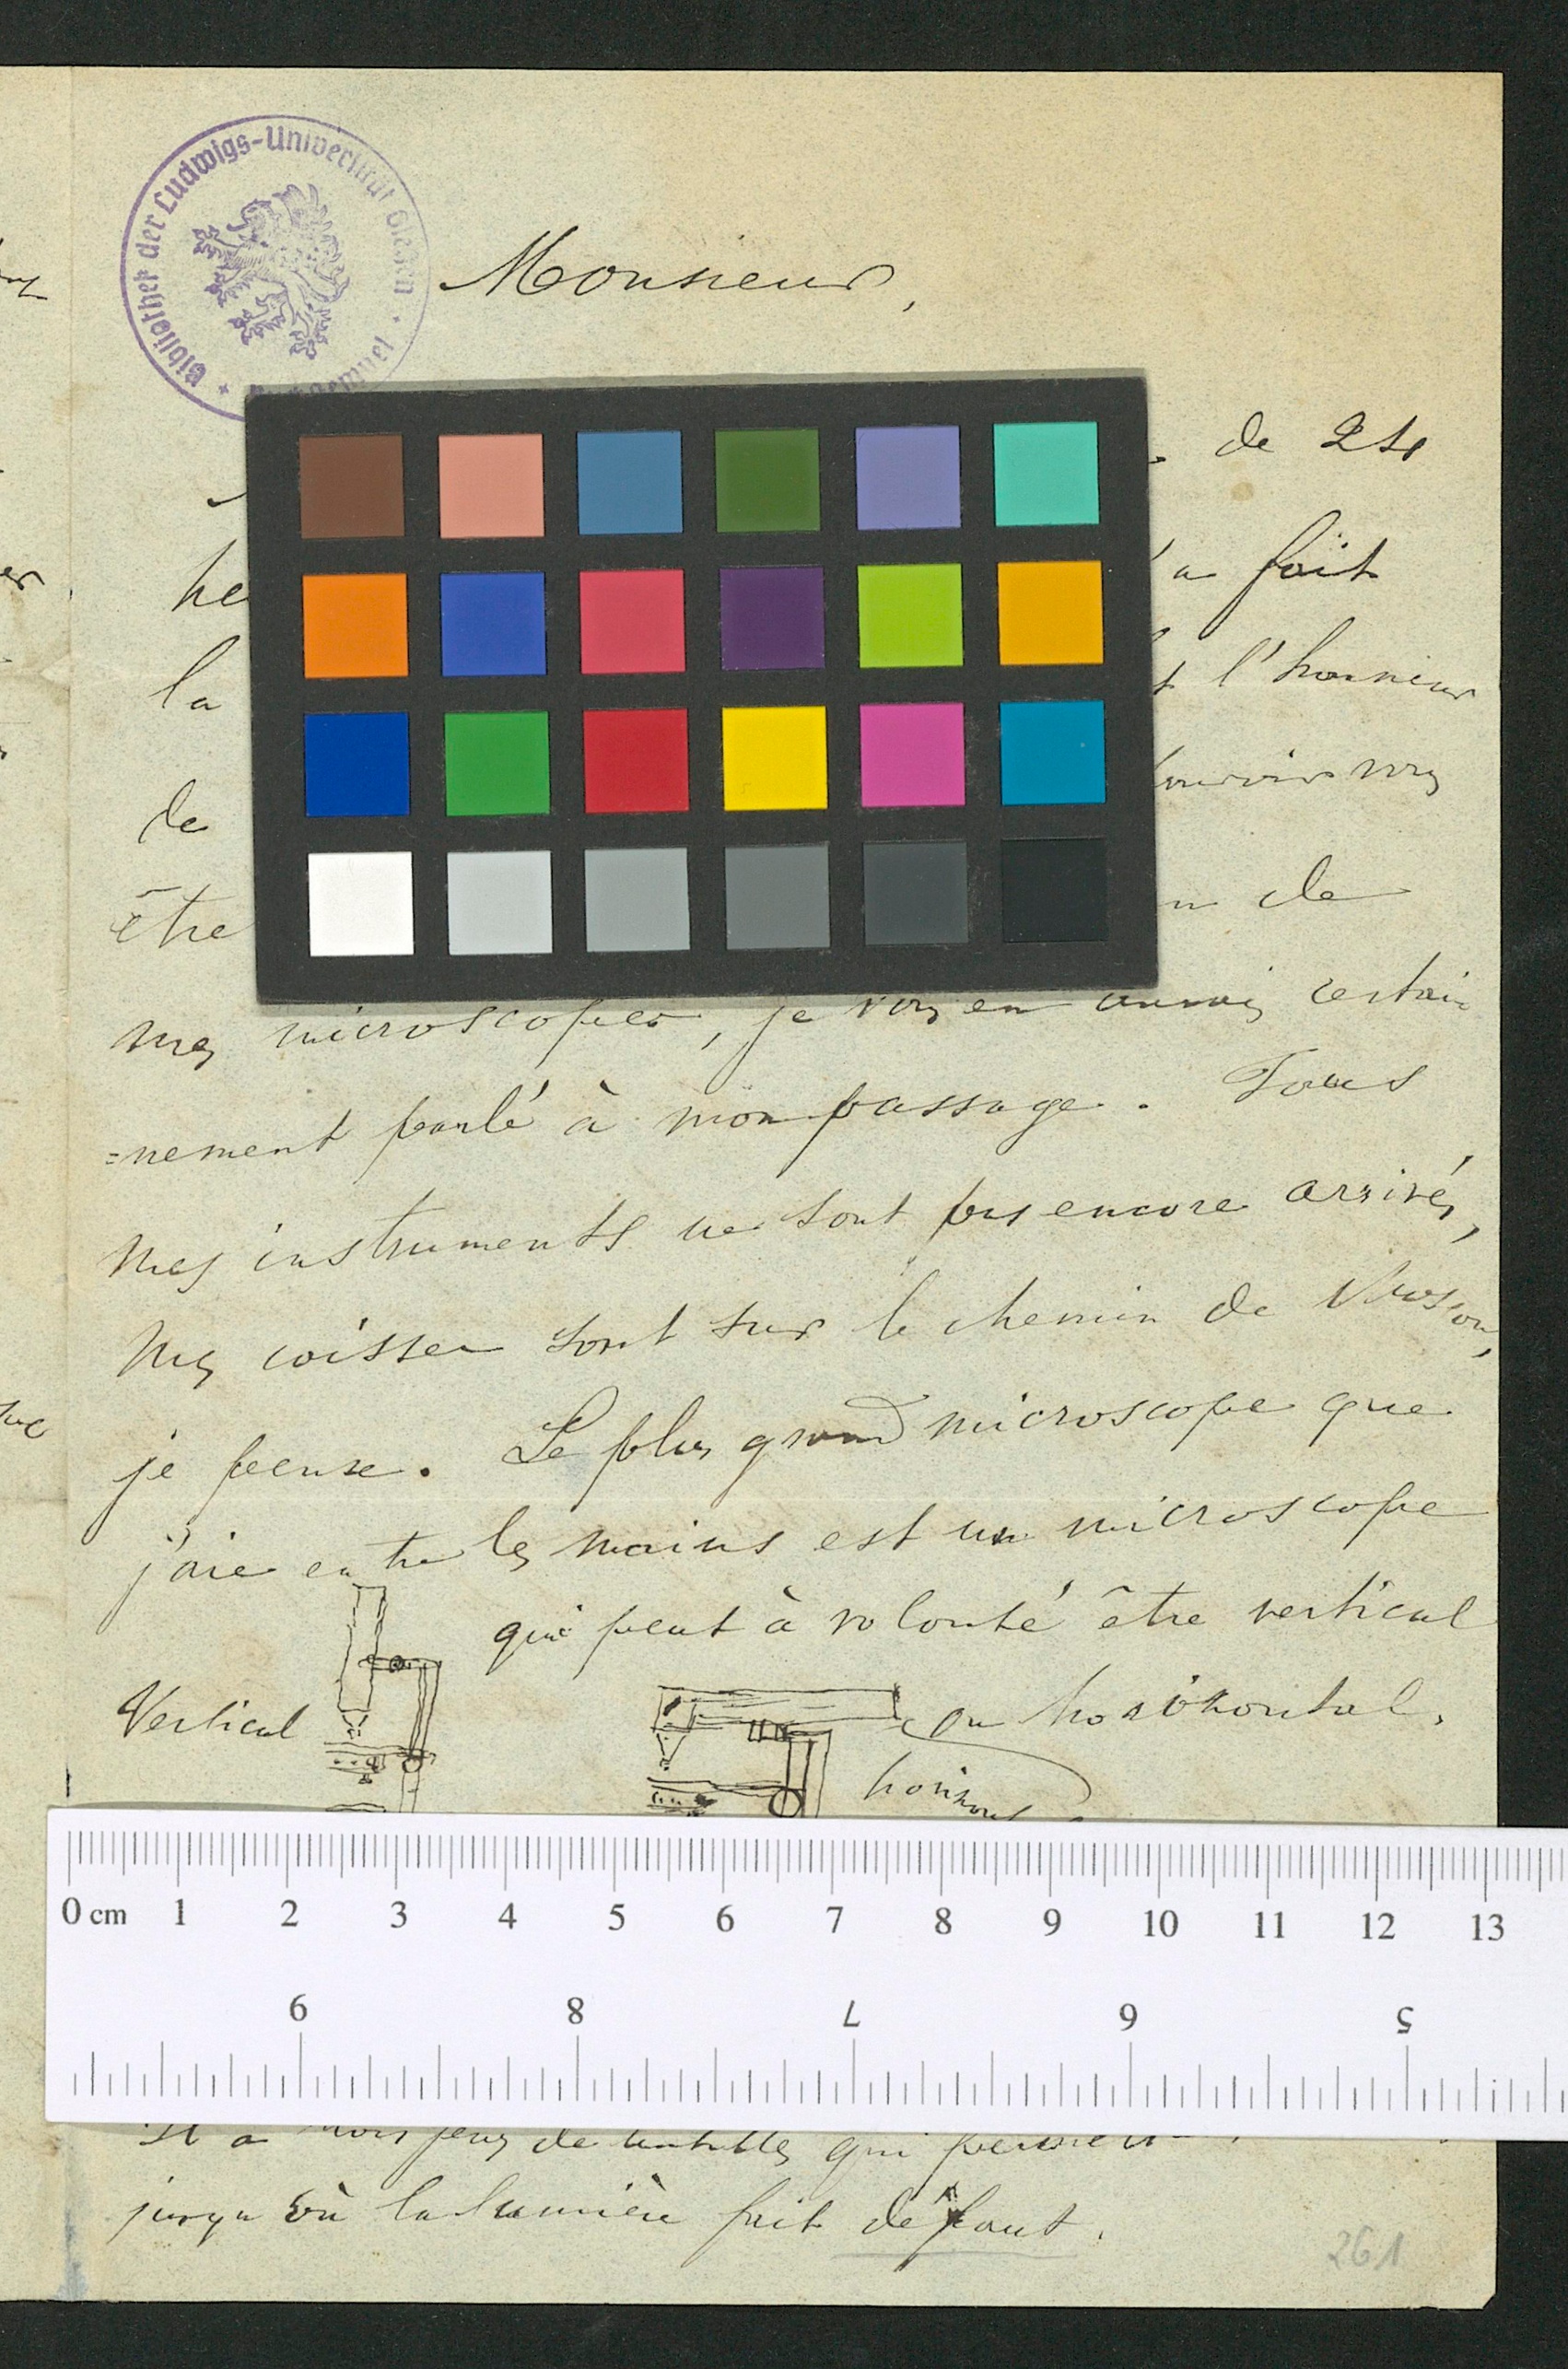 Bibliothek der Ludwigs-Universität Giessen
Monsieur,
de 24
he
'a fait
la
l'honneur
de
être
de
mes microscopes, je vous en aurais certai
=nement parlé à mon passage. Tous
mes instruments ne sont pas encore arrivés,
mes caisses sont sur le chemin de
je pense. Le plus grand microscope que
j'aie entre les mains est un microscope
qui peut à volonté être vertical
Vertical
ou horizontal.
horizont
0 cm 1 2 3 4 5 6 7 8 9 10 11 12 13
9 8 7 6 5
Il a trois jeux de lentilles qui
jusqu'où la lumière fait défaut.
261